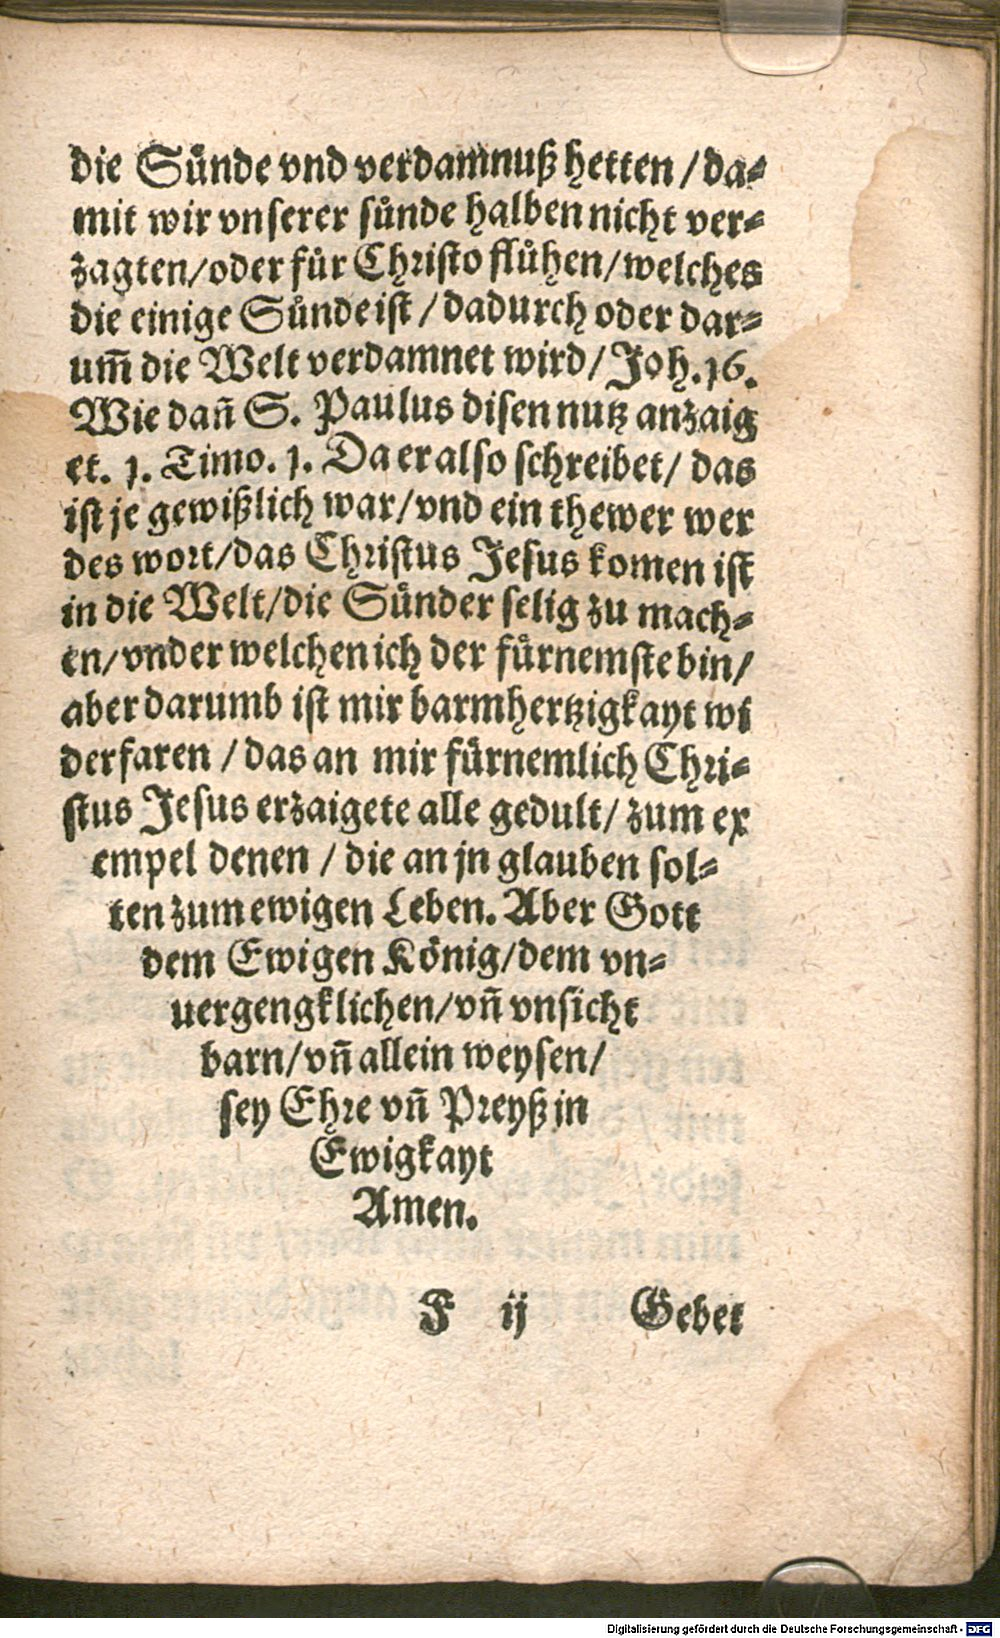 die Sünde vnd verdamnuß hetten / da⸗
mit wir vnserer sünde halben nicht ver⸗
zagten / oder für Christo flühen / welches
die einige Sünde ist / dadurch oder dar⸗
um̃ die Welt verdamnet wird / Joh. 16.
Wie dañ S. Paulus disen nutz anzaig
et. 1. Timo. 1. Da er also schreibet / das
ist je gewißlich war / vnd ein thewer wer
des wort / das Christus Jesus komen ist
in die Welt / die Sünder selig zu mach⸗
en / vnder welchen ich der fürnemste bin /
aber darumb ist mir barmhertzigkayt wi
derfaren / das an mir fürnemlich Chri⸗
stus Jesus erzaigete alle gedult / zum ex
empel denen / die an jn glauben sol⸗
ten zum ewigen Leben. Aber Gott
dem Ewigen König / dem vn⸗
uergengklichen / vñ vnsicht
barn / vñ allein weysen /
sey Ehre vñ Preyß in
Ewigkayt
Amen.
F ij Gebet
Digitalisierung gefördert durch die Deutsche Forschungsgemeinschaft - DFG